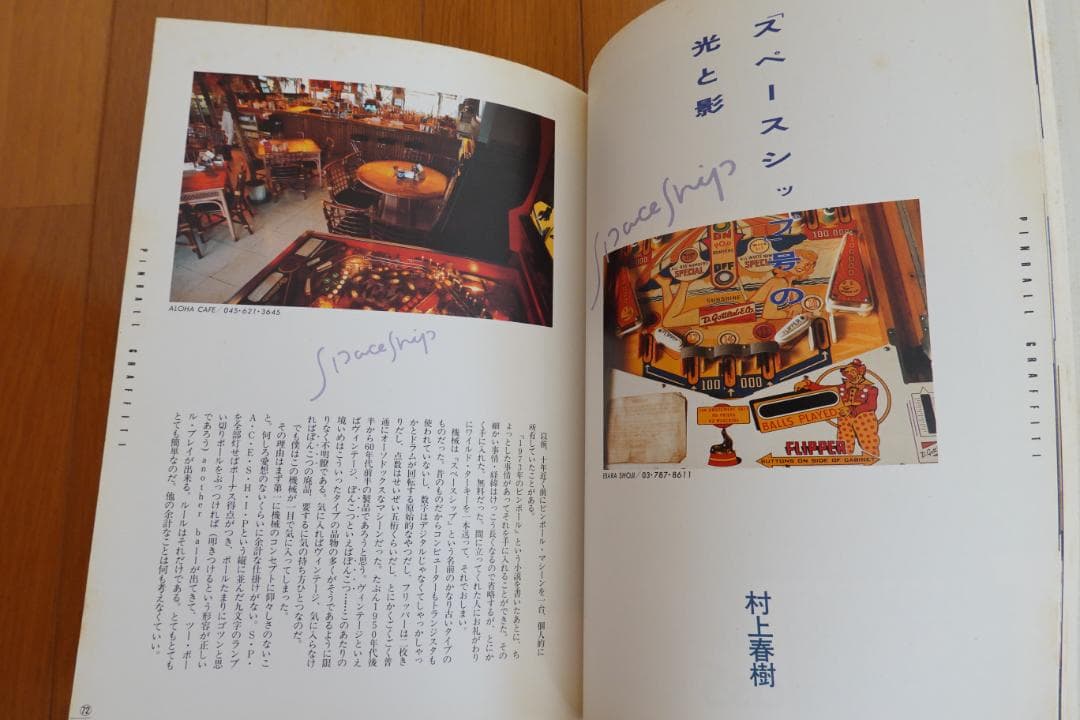 「スペースシップ号の
光と影
SpaceShip
UP TO
100,000
SPECIAL
ON
OFF
SPECIAL
100,000
SUNSHINE
D. Gottlieb & Co.
FLIPPER
FLIPPER
100 000
BALLS PLAYED
FLIPPER
BUTTONS ON SIDE OF CABINET
EBARA SHOJI／03・787・8611
PINBALL GRAFFITI
村上春樹
ALOHA CAFE／045・621・3645
SpaceShip
PINBALL GRAFFITI
以前、十年近く前にピンボール・マシーンを一台、個人的に
所有していたことがある。
『1973年のピンボール』という小説を書いたあとに、ち
ょっとした事情があってそれを手に入れることができた。その
細かい事情・経緯はけっこう長くなるので省略するが、とにか
く手に入れた。無料だった。間に立ってくれた人にお礼がわり
にワイルド・ターキーを一本送って、それでおしまい。
機械は「スペースシップ」という名前のかなり古いタイプの
ものだった。昔のものだからコンピューターもトランジスタも
使われていないし、数字はデジタルじゃなくてしゃっかしゃっ
かとドラムが回転する原始的なやつだし、フリッパーは二枚き
りだし、点数はせいぜい五桁くらいだし、とにかくごくごく普
通にオーソドックスなマシーンだった。たぶん1950年代後
半から60年代前半の製品であろうと思う。ヴィンテージといえ
ばヴィンテージ、ぽんこつといえばぽんこつ……このあたりの
境いめはこういったタイプの品物の多くがそうであるように限
りなく不明瞭である。気に入ればヴィンテージ、気に入らなけ
ればぽんこつの廃品、要するに気の持ち方ひとつなのだ。
でも僕はこの機械が一目で気に入ってしまった。
その理由はまず第一に機械のコンセプトに仰々しさのないこ
と。何しろ愛想のないくらいに余計な仕掛けがない。S・P・
A・C・E・S・H・I・Pという縦に並んだ九文字のランプ
を全部灯せばボーナス得点がつき、ボールたまりにゴツンと思
い切りボールをぶっつければ（叩きつけるという形容が正しい
であろう）another ballが出てきて、ツー・ボー
ル・プレイが出来る。ルールはそれだけである。とてもとても
とても簡単なのだ。他の余計なことは何も考えなくていい。
72